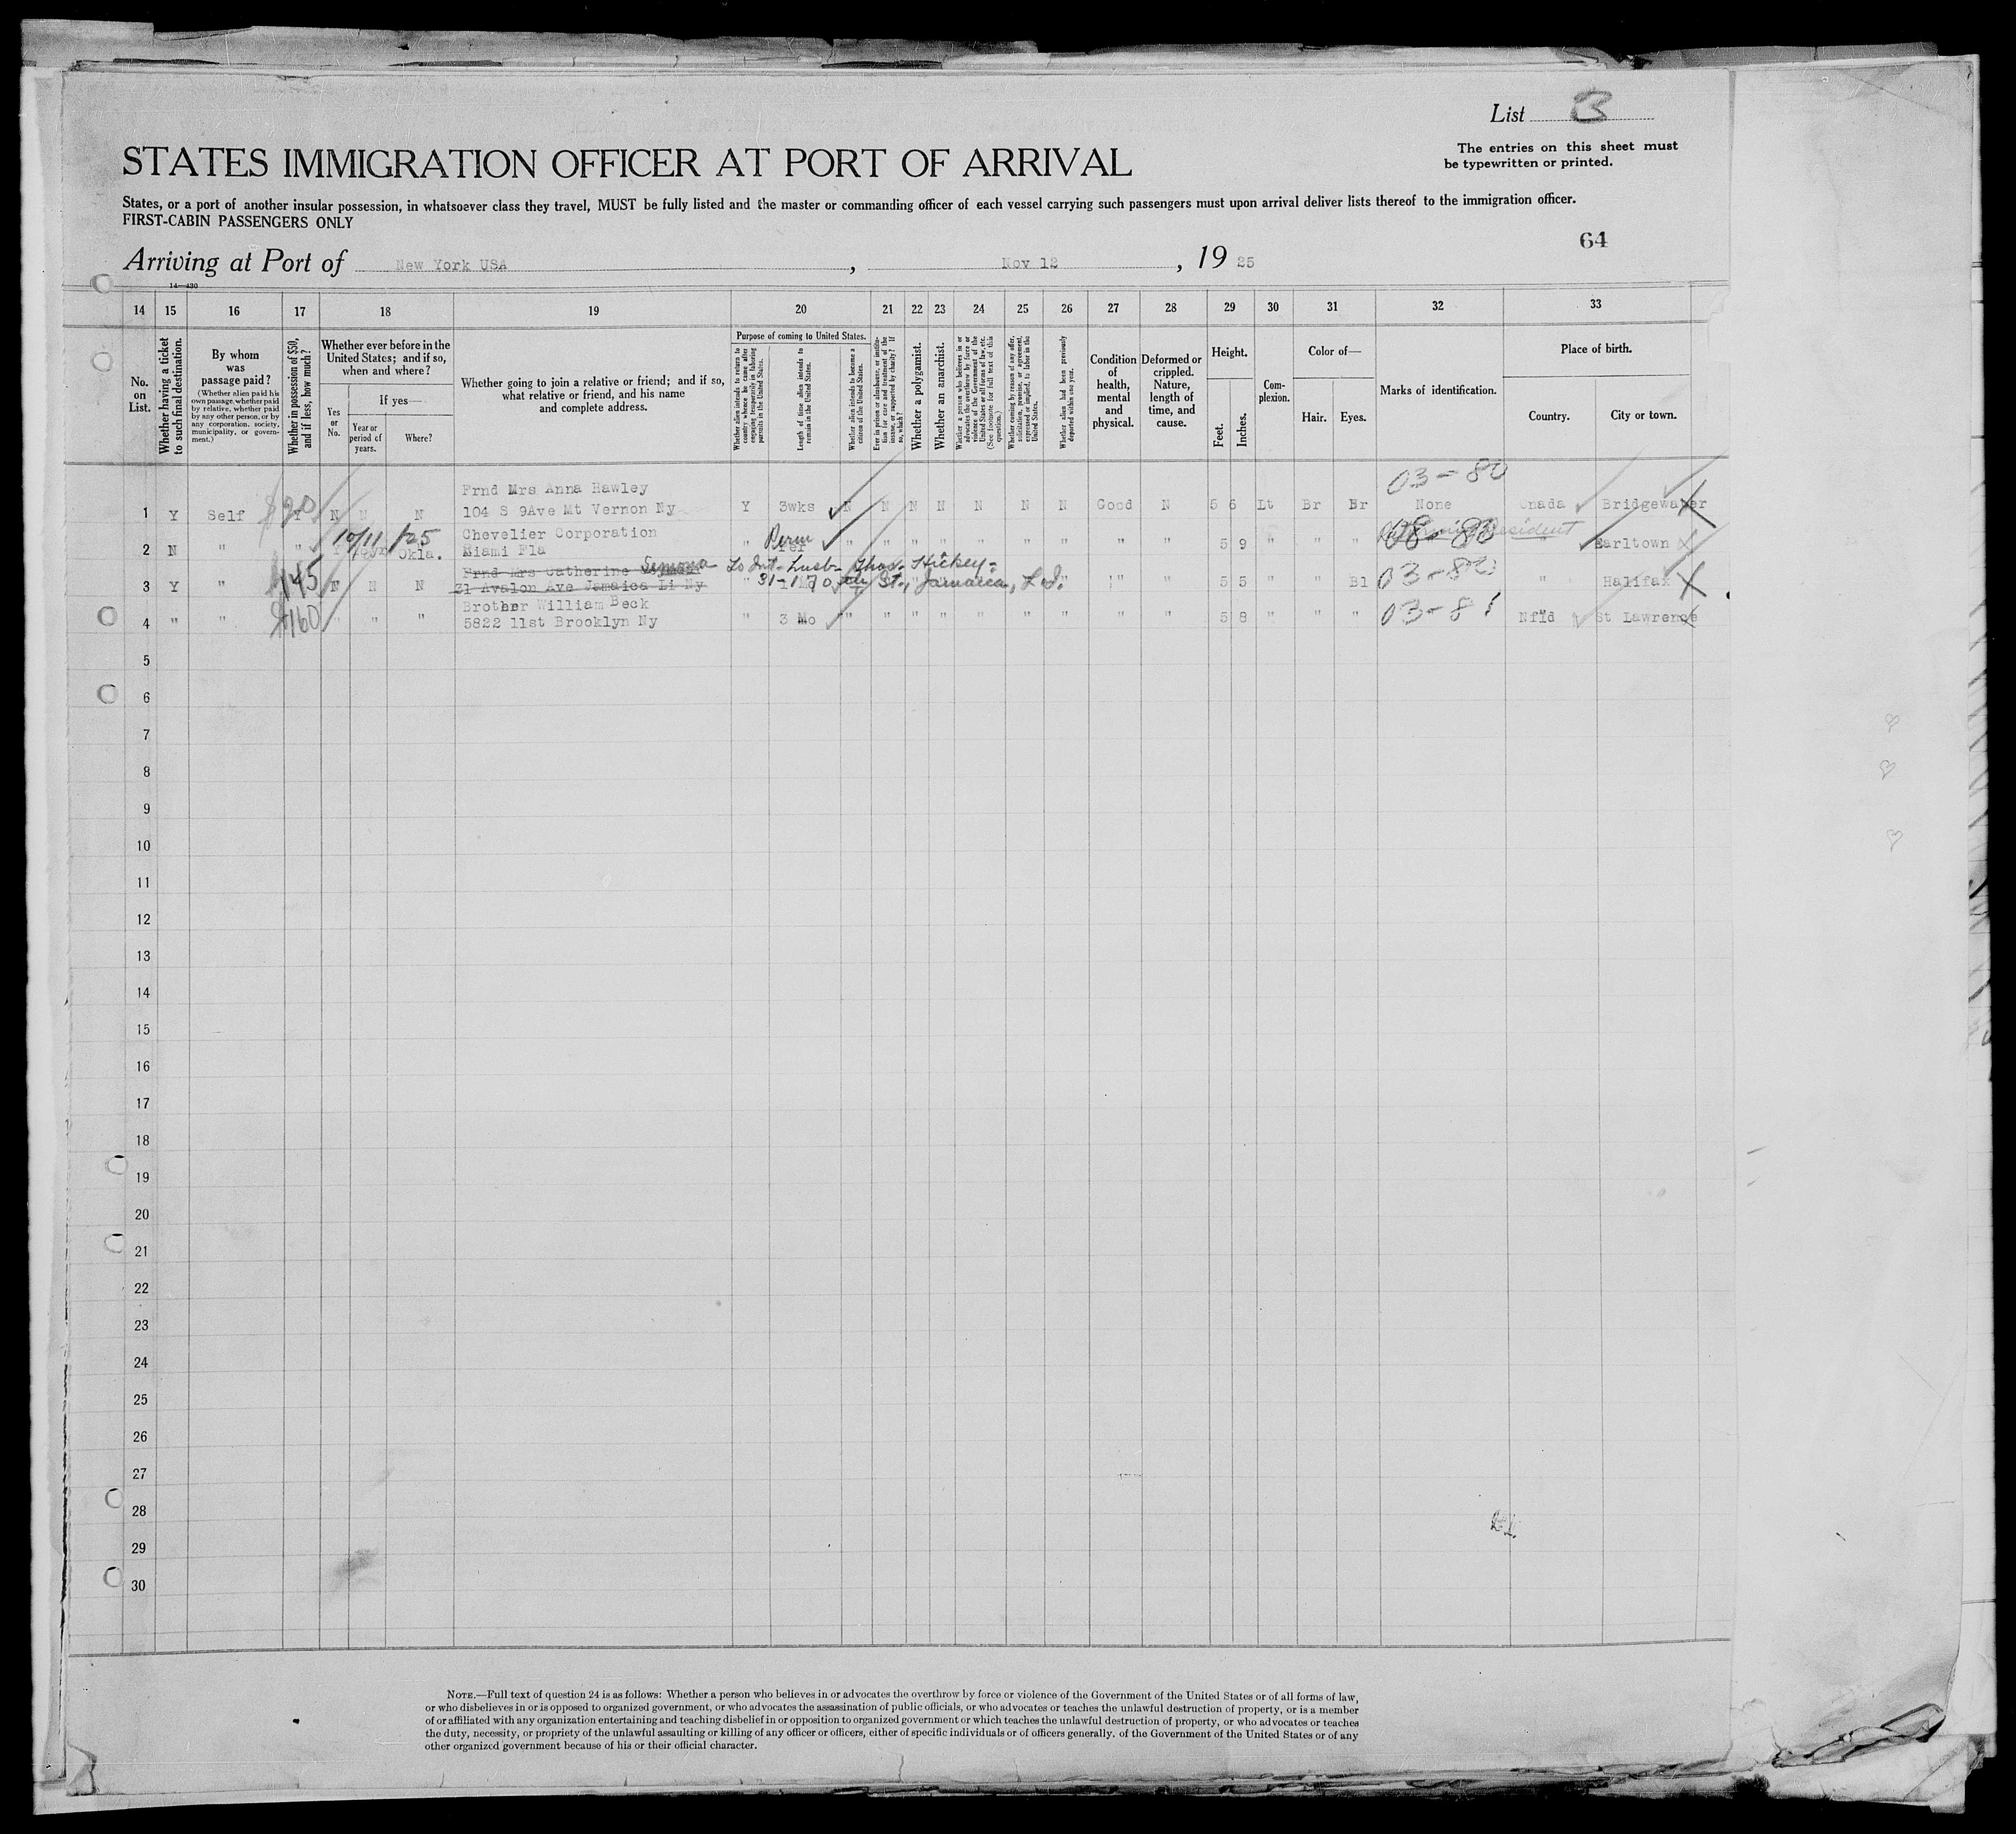 List B
The entries on this sheet must
be typewritten or printed.
STATES IMMIGRATION OFFICER AT PORT OF ARRIVAL
States, or a port of another insular possession, in whatsoever class they travel, MUST be fully listed and the master or commanding officer of each vessel carrying such passengers must upon arrival deliver lists thereof to the immigration officer.
FIRST-CABIN PASSENGERS ONLY
64
Arriving at Port of New York USA , Nov 12 , 19 25
14—430
14 15 16 17 18 19 20 21 22 23 24 25 26 27 28 29 30 31 32 33
No. on List.
Whether having a ticket to such final destination.
By whom was passage paid?
(Whether alien paid his own passage, whether paid by relative, whether paid by any other person, or by any corporation, society, municipality, or government.)
Whether in possession of $50, and if less, how much?
Whether ever before in the United States; and if so, when and where?
Yes or No.
If yes—
Year or period of years.
Where?
Whether going to join a relative or friend; and if so, what relative or friend, and his name and complete address.
Purpose of coming to United States.
Whether alien intends to return to country whence he came after engaging temporarily in laboring pursuits in the United States.
Length of time alien intends to remain in the United States.
Whether alien intends to become a citizen of the United States.
Ever in prison or almshouse, or institution for care and treatment of the insane, or supported by charity? If so, which?
Whether a polygamist.
Whether an anarchist.
Whether a person who believes in or advocates the overthrow by force or violence of the Government of the United States or all forms of law, etc. (See footnote for full text of this question.)
Whether coming by reason of any offer, solicitation, promise, or agreement, expressed or implied, to labor in the United States.
Whether alien had been previously deported within one year.
Condition of health, mental and physical.
Deformed or crippled. Nature, length of time, and cause.
Height.
Feet.
Inches.
Complexion.
Color of—
Hair.
Eyes.
Marks of identification.
Place of birth.
Country.
City or town.
03-80
Frnd Mrs Anna Hawley
1 Y Self $20 Y N N N 104 S 9Ave Mt Vernon Ny Y 3wks N N N N N N N Good N 5 6 Lt Br Br None Cnada Bridgewater
10/11/25 Chevelier Corporation Perm 08-80 Resident
2 N " " Okla. Miami Fla " Per " " " " " " " " " 5 9 " " " " Earltown
Frnd Mrs Catherine Simona To Int. Husb- Thos. Hickey-
3 Y " $145 N N N 21 Avalon Ave Jamaica Li Ny 31-170 St., Jamaica, L I. " " " 5 5 " " Bl 03-82 " Halifax
Brother William Beck
4 " " $160 " " " 5822 11st Brooklyn Ny " 3 Mo " " " " " " " " " 5 8 " " " 03-81 Nfld St Lawrence
5
6
7
8
9
10
11
12
13
14
15
16
17
18
19
20
21
22
23
24
25
26
27
28
29
30
NOTE.—Full text of question 24 is as follows: Whether a person who believes in or advocates the overthrow by force or violence of the Government of the United States or of all forms of law,
or who disbelieves in or is opposed to organized government, or who advocates the assassination of public officials, or who advocates or teaches the unlawful destruction of property, or is a member
of or affiliated with any organization entertaining and teaching disbelief in or opposition to organized government or which teaches the unlawful destruction of property, or who advocates or teaches
the duty, necessity, or propriety of the unlawful assaulting or killing of any officer or officers, either of specific individuals or of officers generally, of the Government of the United States or of any
other organized government because of his or their official character.